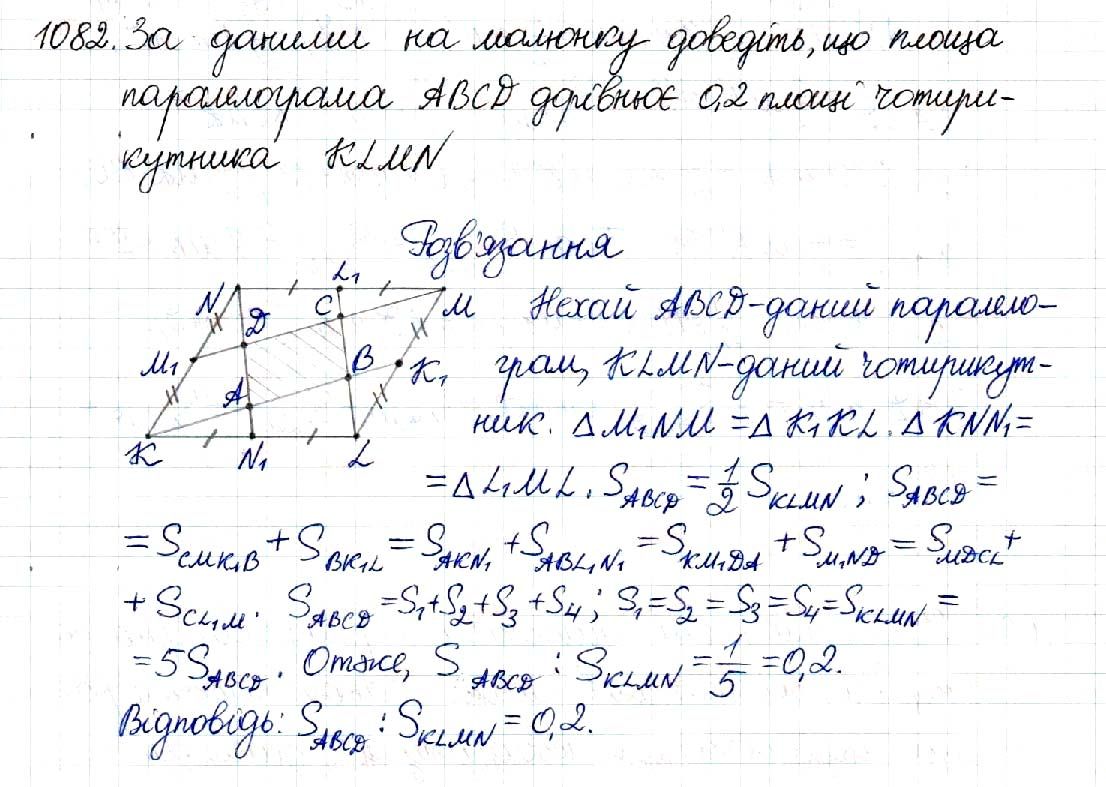 1082. За даними на малюнку доведіть, що площа
паралелограма ABCD дорівнює 0,2 площі чотири-
кутника KLMN
Розв'язання
N L₁ M
D C
M₁ B K₁
A
K N₁ L
Нехай ABCD-даний парало-
грам, KLMN-даний чотирикут-
ник. △M₁NM = △K₁KL. △KNN₁=
= △L₁ML. S_ABCD = 1/2 S_KLMN ; S_ABCD =
= S_CMK₁B + S_BK₁L = S_AKN₁ + S_ABL₁N₁ = S_KM₁DA + S_M₁ND = S_MDCL +
+ S_CL₁M. S_ABCD = S₁+S₂+S₃+S₄; S₁=S₂=S₃=S₄=S_KLMN =
= 5S_ABCD. Отже, S_ABCD : S_KLMN = 1/5 = 0,2.
Відповідь: S_ABCD : S_KLMN = 0,2.